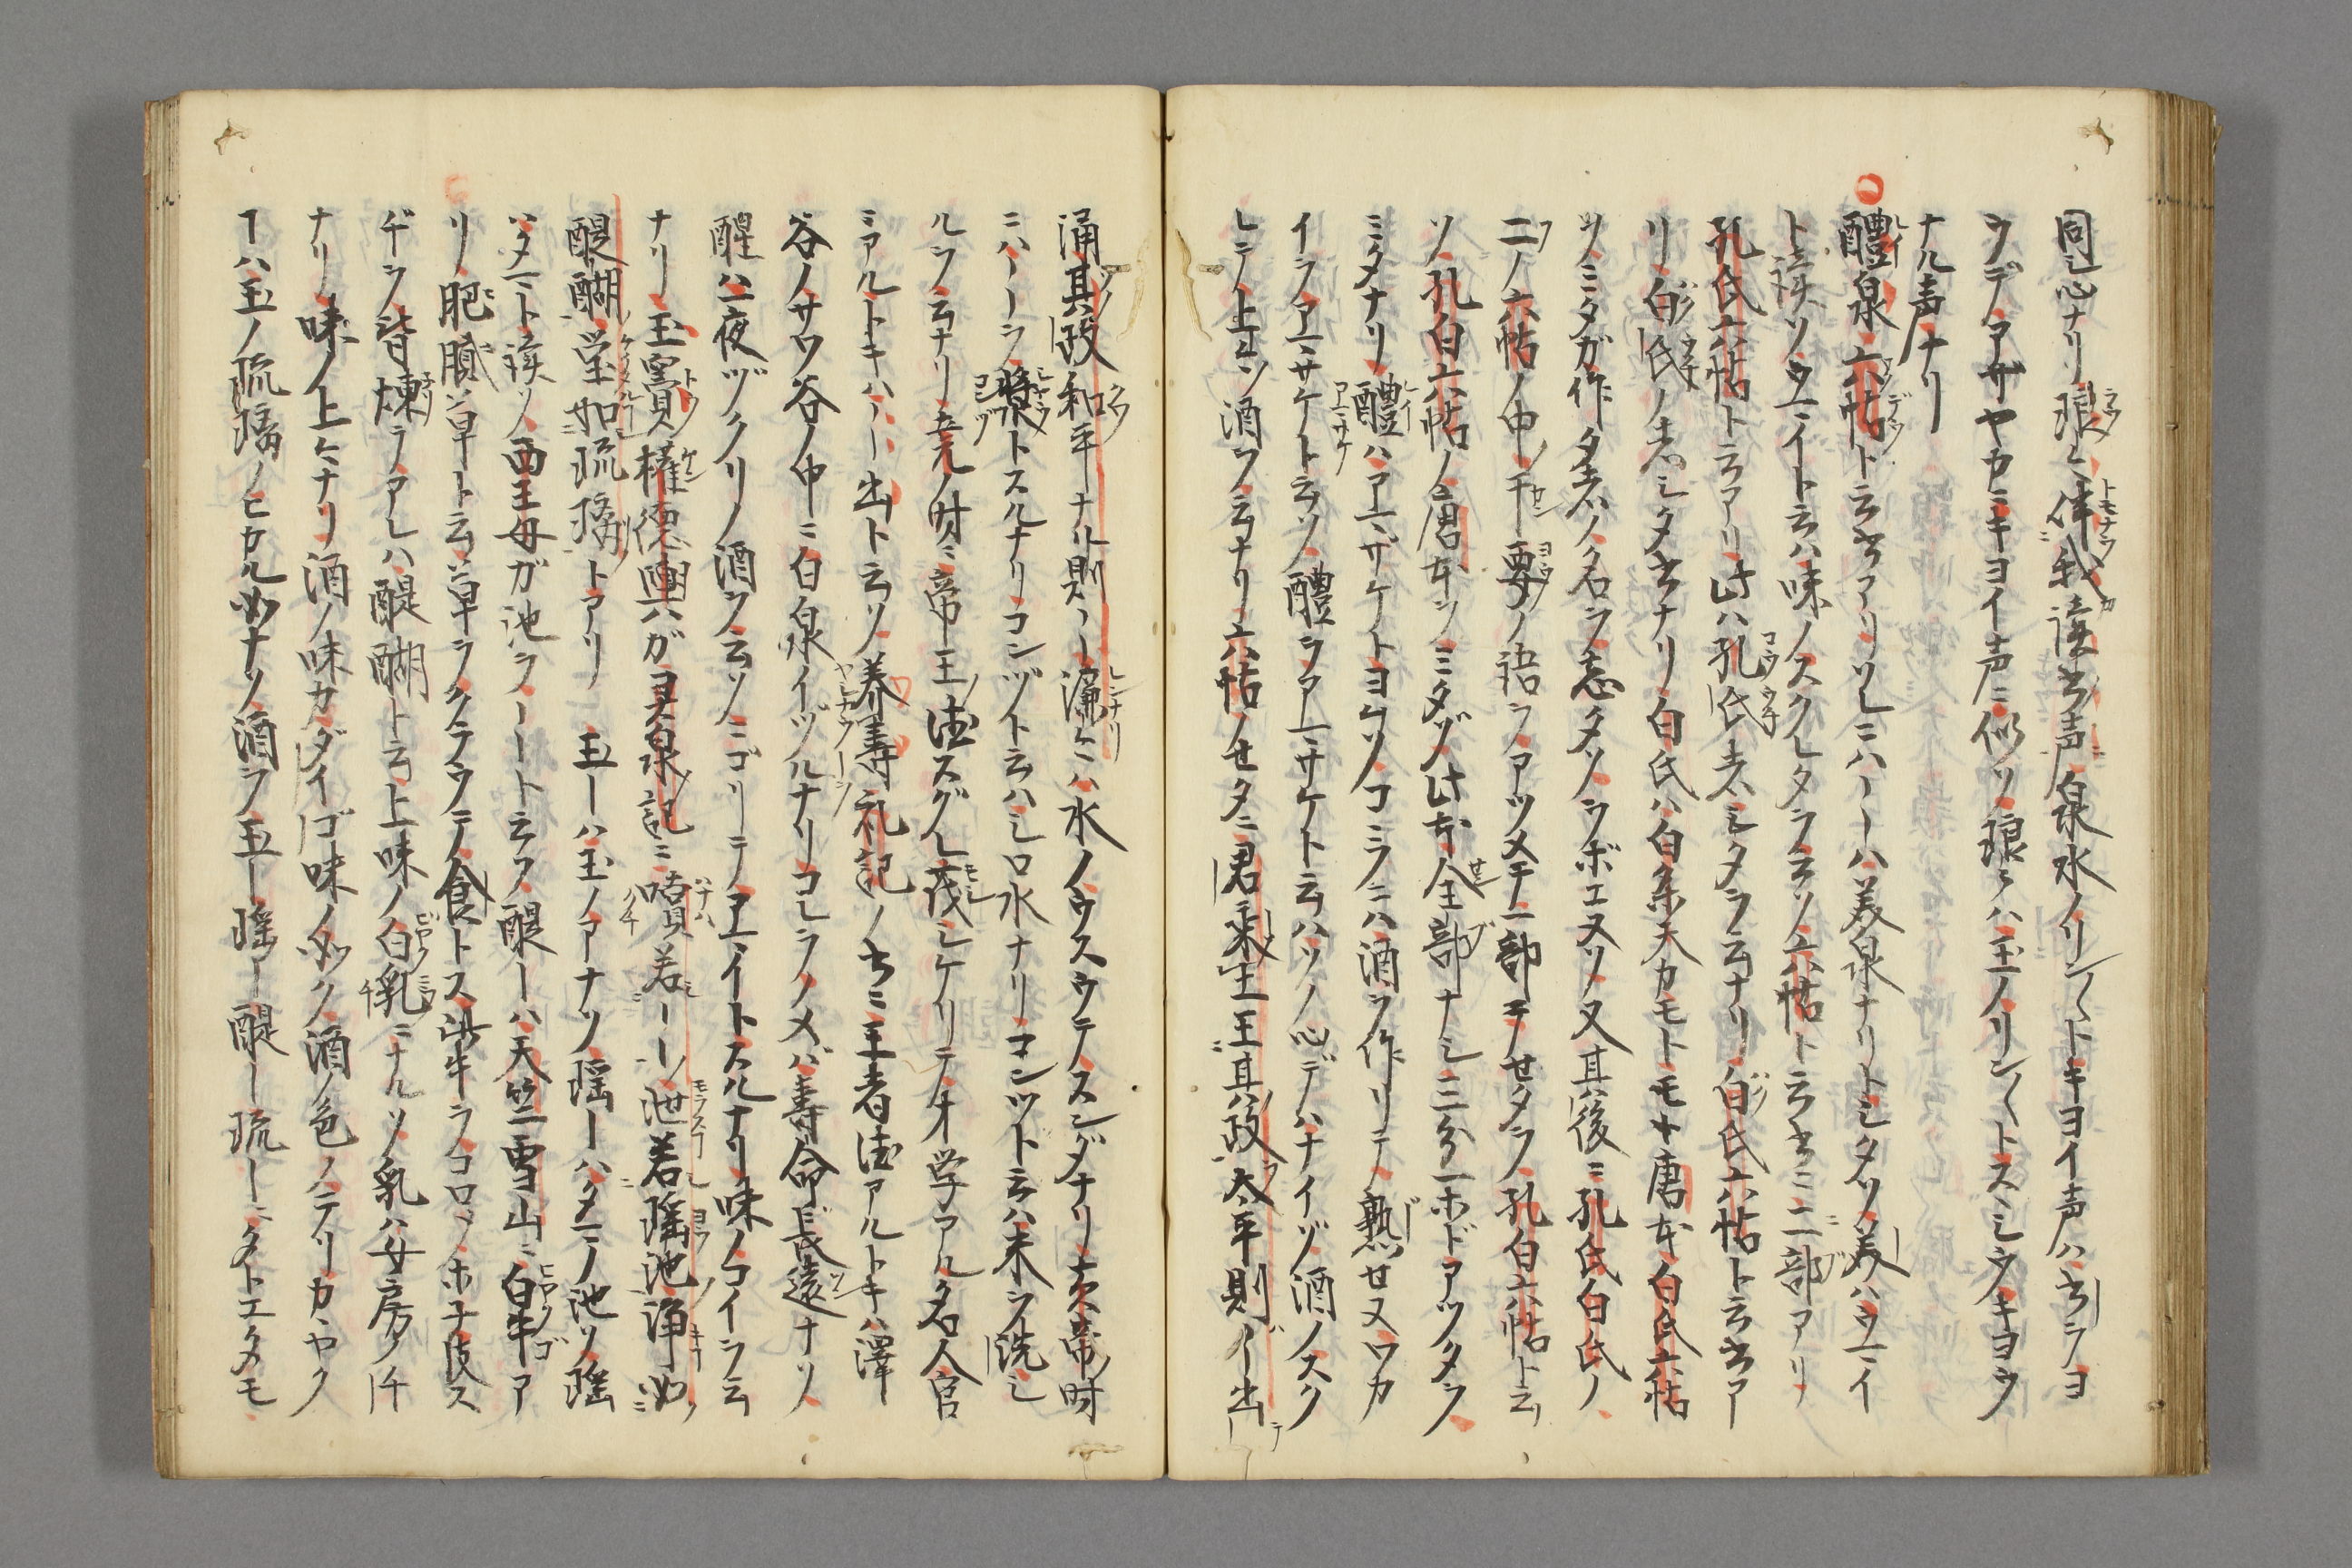 同シ心ナリ琅々伴我読書声泉水ノリン〱トキヨイ声ハ書ヲヨ
ウデアザヤカニキヨイ声ニ似ソ琅々ハ玉ノリン〱トスミシウキヨウ
ナル声ナリ
醴泉六帖ト云書アリソレニハ――ハ美泉ナリトシタソ美ハウーイ
ト読ソウーイト云ハ味ノスクレタヲ云ソ六帖ト云書ニ二部アリ
孔氏六帖ト云アリ此ハ孔氏志シタヲ云ナリ白氏六帖ト云書ア
リ白氏ノ志シタ書ナリ白氏ハ白楽天カモトモヤ唐本白氏六帖
ソミタガ作タ者ノ名ヲ忘タソヲボエヌソ又其後ニ孔氏白氏ノ
二ノ六帖ノ中ノ干要ノ語ヲアツメテ一部ニセタヲ孔白六帖ト云
ソ孔白六帖ノ唐本ソミタゾ此本全部ナシ三分一ホドアツタヲ
ミタナリ醴ハアーザケトヨムソコヽラニハ酒ヲ作リテ熟セヌワカ
イヲアーサケト云ソ醴ヲアーサケト云ハソノ心デハナイゾ酒ノスク
レテ上ヨソ酒ヲ云ナリ六帖ノセタニ君乗土王其政太平則――出
涌其政和平ナル則――濂々ハ水ノウスウテスンダナリ黄帝時
ニハ――ヲ漿トスルナリコンヅト云ハシロ水ナリコンツト云ハ米ヲ洗シ
ルヲ云ナリ堯ノ時ニ帝王徳スグレ茂シケリテ才学アル名人官
ミアルトキハ――出ト云ソ養寿礼記ノ書ニ王者徳アルトキハ澤
谷ノサワ谷ノ中ニ白泉イヅルナリコレヲノメバ寿命長遠ナソ
醒ハ一夜ヅクリノ酒ヲ云ソニゴリテアーイトスルナリ味ノコイヲ云
ナリ玉竇権徳輿ガ灵泉記ニ噴若――泄若瑶池浄如
醍醐瑩如琉璃トアリ玉―ハ玉ノアナソ瑶―ハタマノ池ソ瑶
ハタマト読ソ西王母ガ池ヲ――ト云フ醍―ハ天竺雪山ニ白牛ア
リ肥膩草ト云草ヲクラウテ食トス此牛ヲコロソホ子皮ス
ヂヲ皆煉ラアレハ醍醐ト云上味ノ白乳ニナルソ乳ハ女房ノチ
ナリ味ノ上々ナリ酒ノ味カダイゴ味ノ如ク酒ノ色ノテリカヽヤク
ヿハ玉ノ琉璃ノヒカル如ナリ酒ヲ玉―瑶―醍―琉―ニタトエタモ